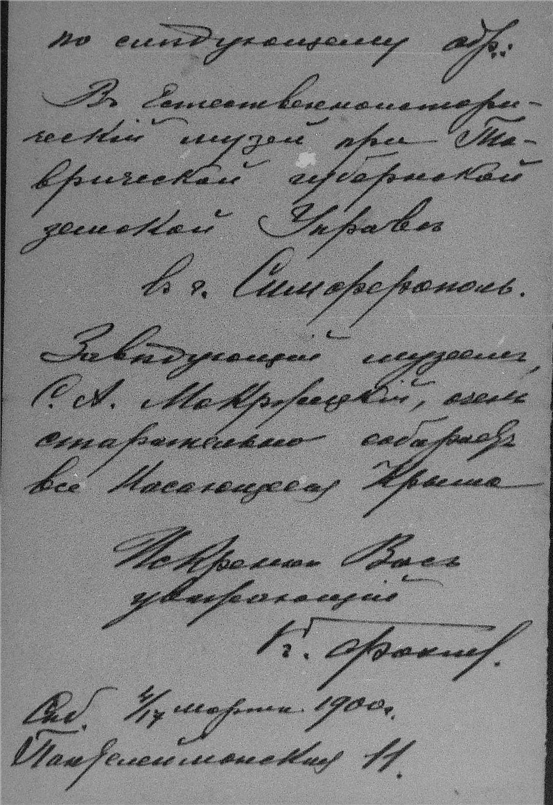 по слѣдующему адр.:
Въ Естественноистори-
ческій музей при Та-
врической губернской
земской Управѣ
въ г. Симферополь.
Завѣдующій музеемъ,
С. А. Мокржецкій, очень
старательно собираетъ
все касающееся Крыма
Искренно Васъ
уважающій
К. Фохтъ.
Спб. 4/17 марта 1900 г.
Пантелеймонская 11.